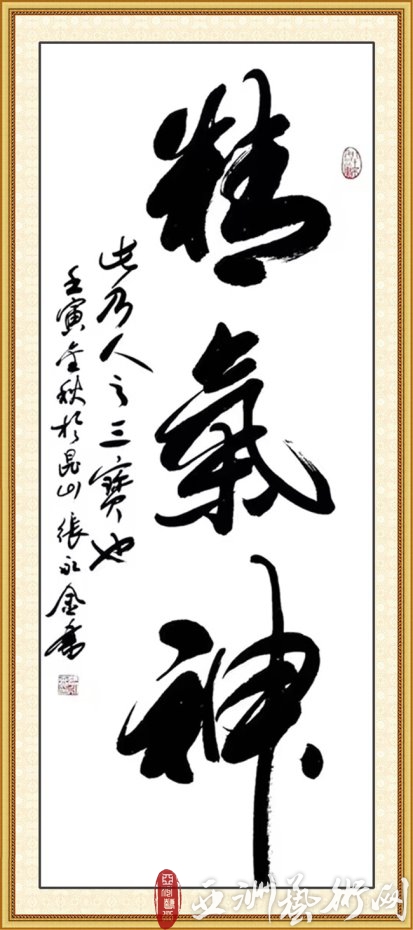 精氣神
此乃人之三寶也
壬寅金秋於昆山張永金書
亞洲藝術网